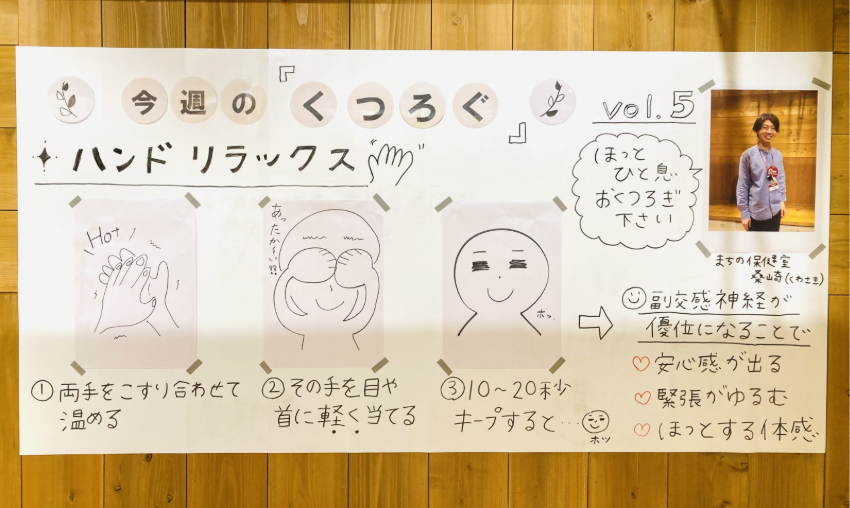 今週の『くつろぐ』 vol.5
ハンドリラックス
ほっと
ひと息
おくつろぎ
下さい
まちの保健室
桑山奇(くわさき)
Hot
あったか〜い!!
ホッ
① 両手をこすり合わせて
温める
② その手を目や
首に軽く当てる
③ 10〜20秒
キープすると…
ホッ
副交感神経が
優位になることで
♡ 安心感が出る
♡ 緊張がゆるむ
♡ ほっとする体感